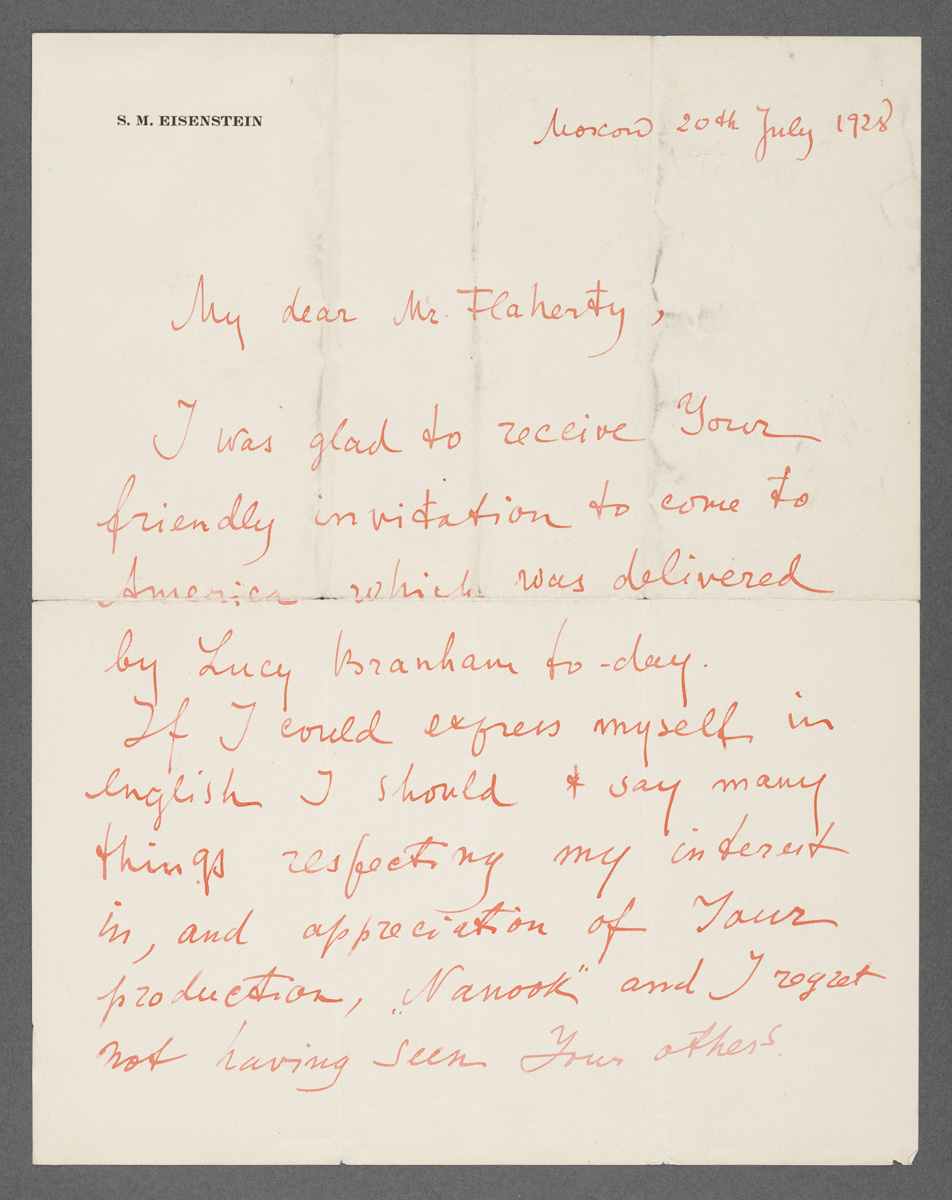 S. M. EISENSTEIN
Moscow 20th July 1928
My dear Mr. Flaherty,
I was glad to receive Your
friendly invitation to come to
America which was delivered
by Lucy Branham to-day.
If I could express myself in
english I should say many
things respecting my interest
in, and appreciation of Your
production, „Nanook" and I regret
not having seen Your others.